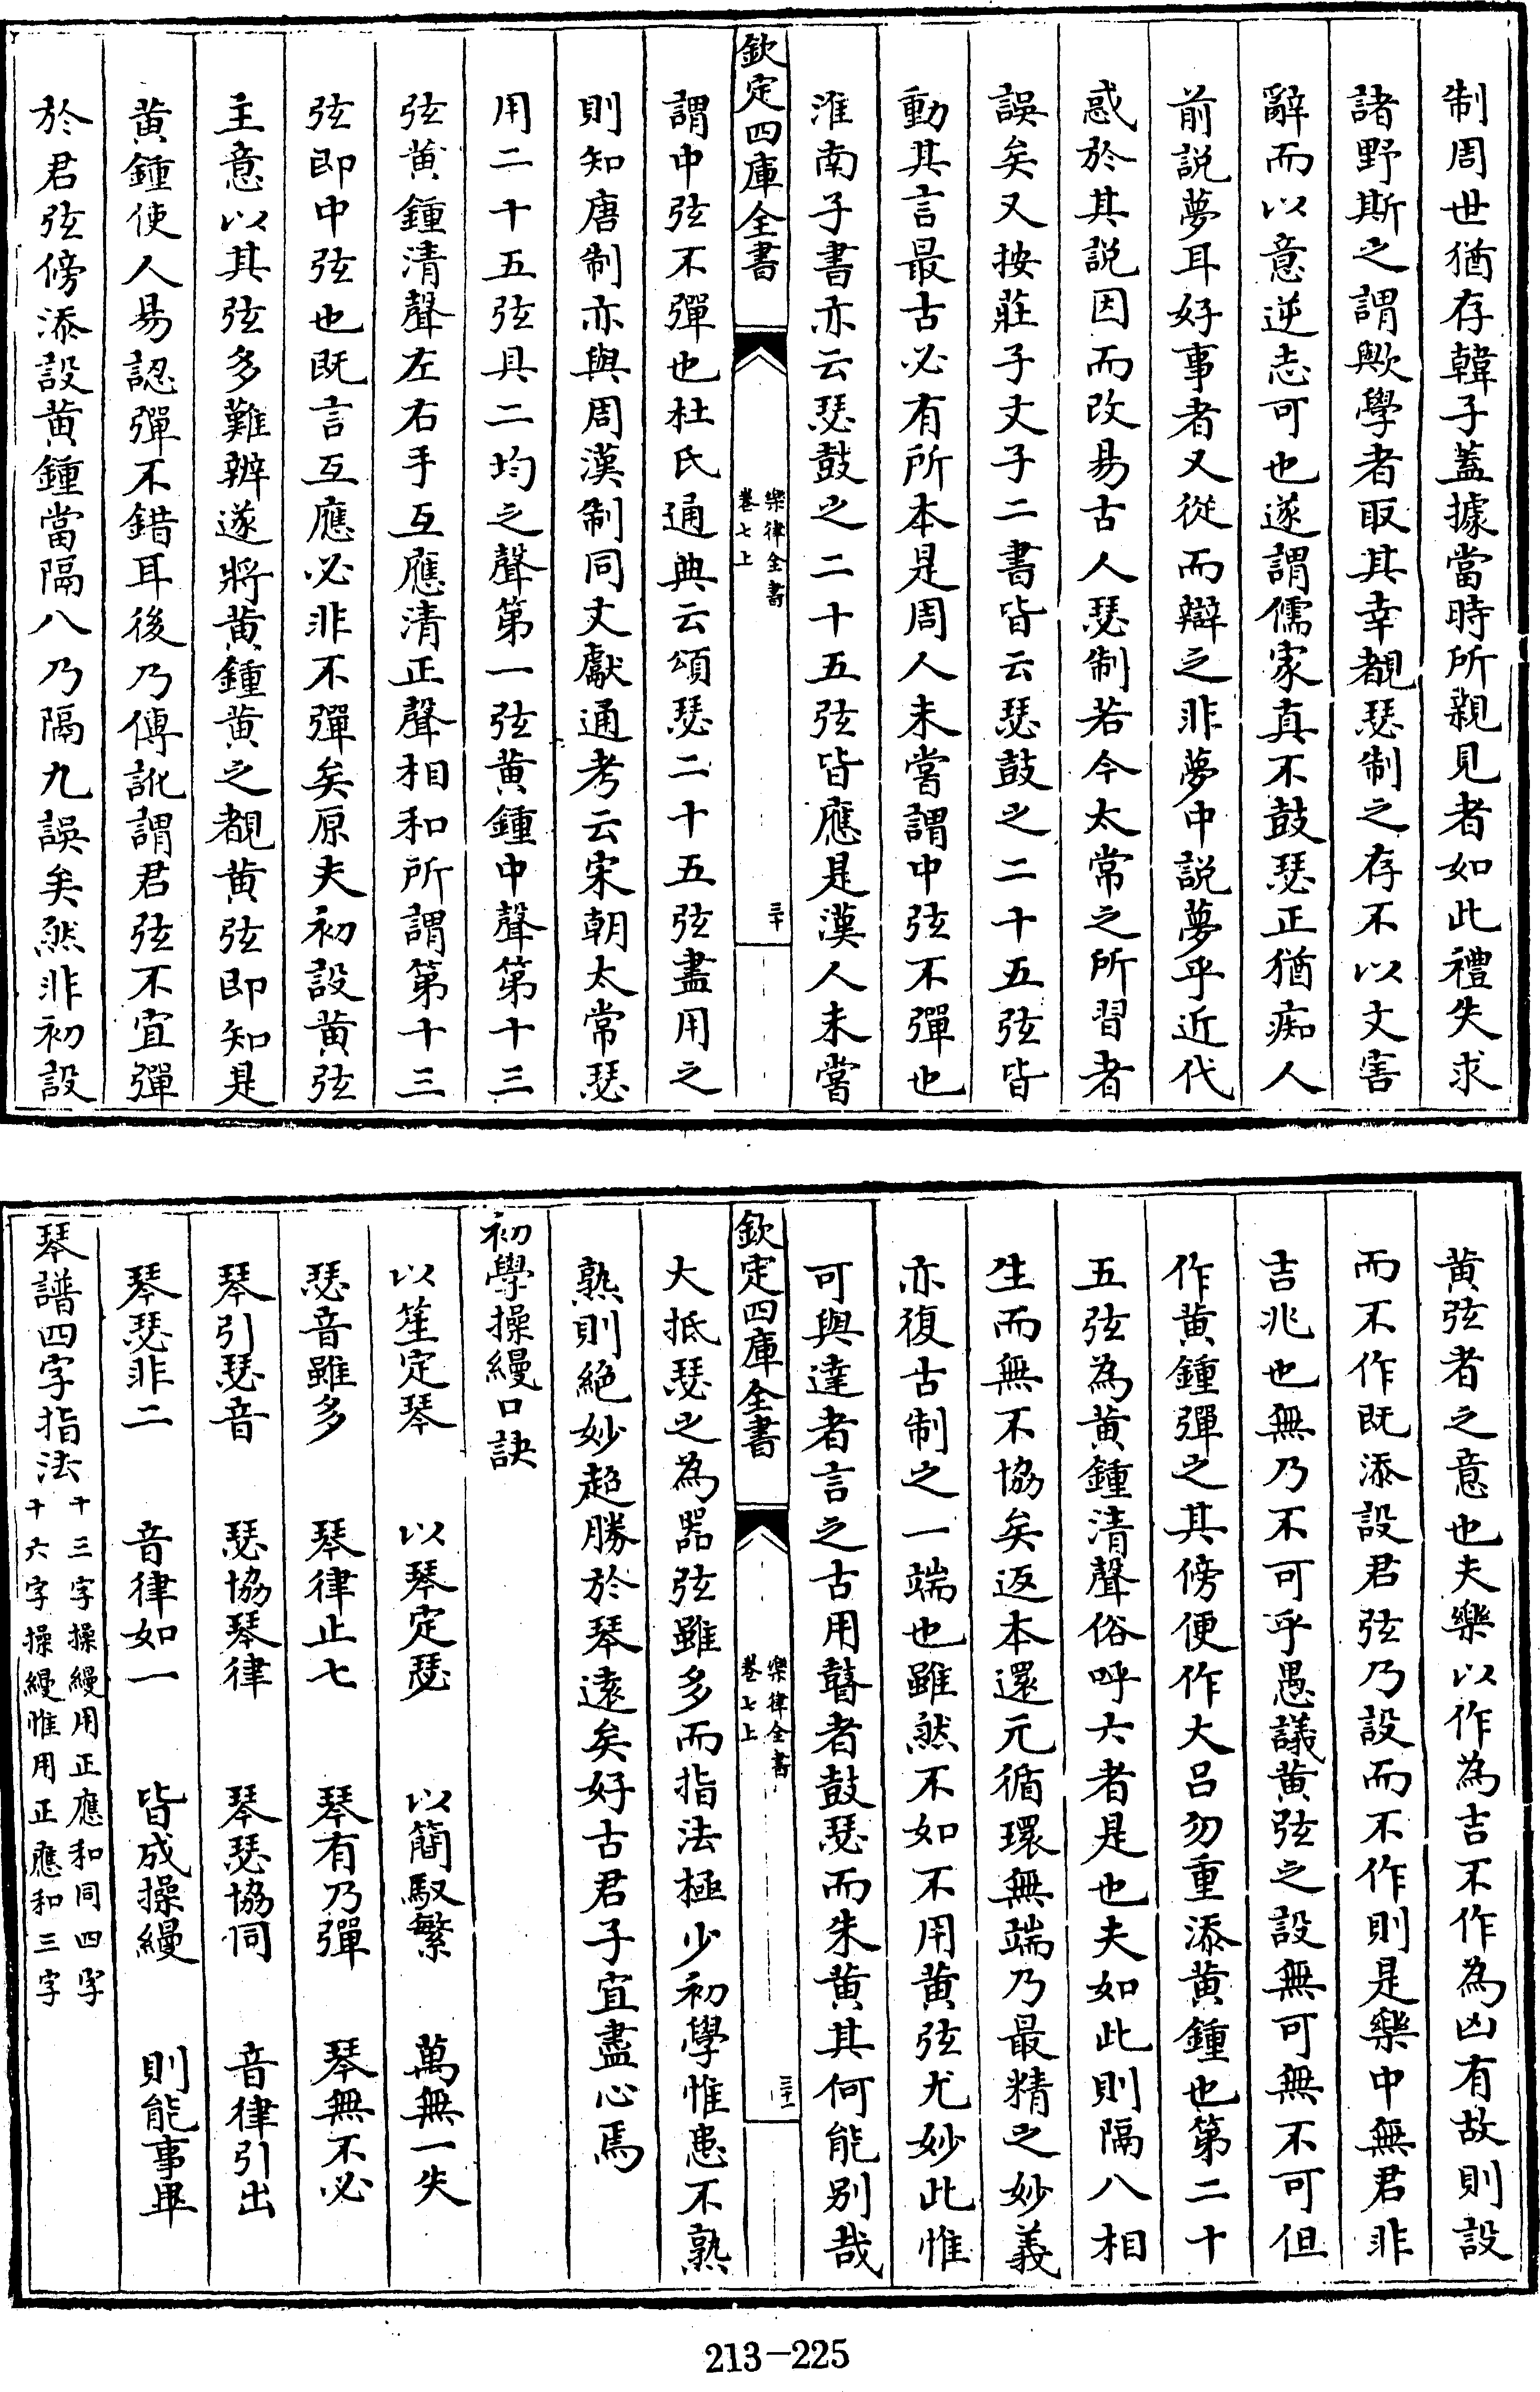 制周世猶存韓子蓋據當時所親見者如此禮失求
諸野斯之謂歟學者取其幸覩瑟制之存不以文害
辭而以意逆志可也遂謂儒家真不鼓瑟正猶痴人
前説夢耳好事者又從而辯之非夢中説夢乎近代
惑於其説因而改易古人瑟制若今太常之所習者
誤矣又按莊子文子二書皆云瑟鼓之二十五弦皆
動其言最古必有所本是周人未嘗謂中弦不彈也
淮南子書亦云瑟鼓之二十五弦皆應是漢人未嘗
欽定四庫全書
樂律全書
卷七上
三十
謂中弦不彈也杜氏通典云頌瑟二十五弦盡用之
則知唐制亦與周漢制同文獻通考云宋朝太常瑟
用二十五弦具二均之聲第一弦黄鍾中聲第十三
弦黄鍾清聲左右手互應清正聲相和所謂第十三
弦即中弦也既言互應必非不彈矣原夫初設黄弦
主意以其弦多難辨遂將黄鍾黄之覩黄弦即知是
黄鍾使人易認彈不錯耳後乃傳訛謂君弦不宜彈
於君弦傍添設黄鍾當隔八乃隔九誤矣然非初設
黄弦者之意也夫樂以作為吉不作為凶有故則設
而不作既添設君弦乃設而不作則是樂中無君非
吉兆也無乃不可乎愚議黄弦之設無可無不可但
作黄鍾彈之其傍便作大吕勿重添黄鍾也第二十
五弦為黄鍾清聲俗呼六者是也夫如此則隔八相
生而無不協矣返本還元循環無端乃最精之妙義
亦復古制之一端也雖然不如不用黄弦尤妙此惟
可與達者言之古用瞽者鼓瑟而朱黄其何能别哉
欽定四庫全書
樂律全書
卷七上
三十一
大抵瑟之為器弦雖多而指法極少初學惟患不熟
熟則絶妙超勝於琴遠矣好古君子宜盡心焉
初學操縵口訣
以笙定琴　以琴定瑟　以簡馭繁　萬無一失
瑟音雖多　琴律止七　琴有乃彈　琴無不必
琴引瑟音　瑟協琴律　琴瑟協同　音律引出
琴瑟非二　音律如一　皆成操縵　則能事畢
琴譜四字指法
十三字操縵用正應和同四字
十六字操縵惟用正應和三字
213-225